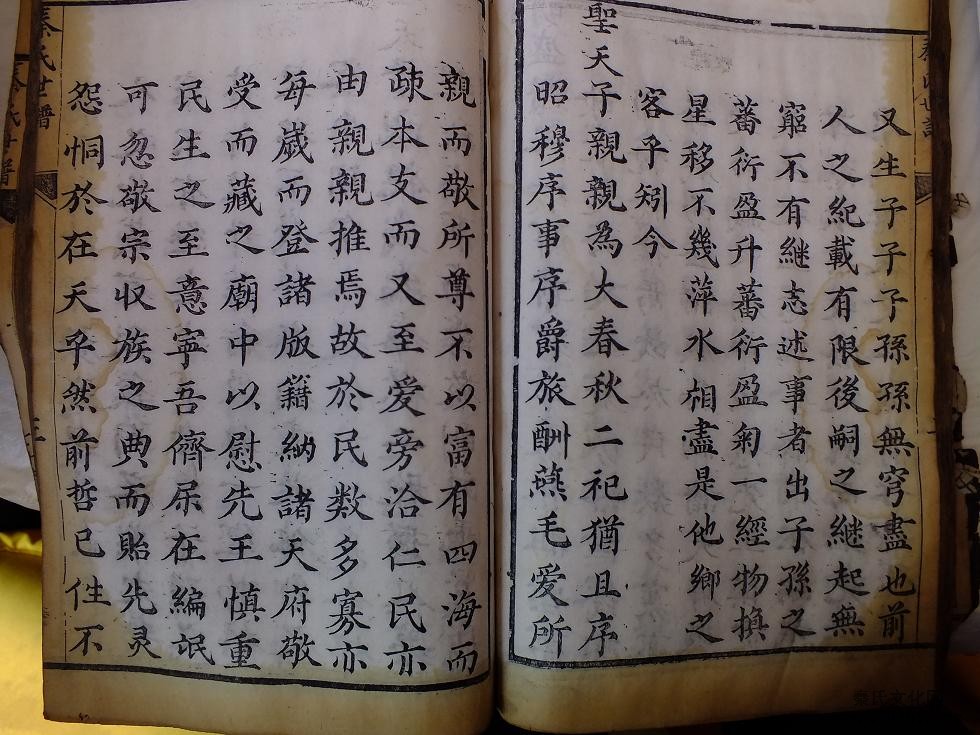 又生子子子孫孫無穹盡也前
人之紀載有限後嗣之継起無
窮不有継志述事者出子孫之
蕃衍盈升蕃衍盈匊一經物換
星移不幾萍水相盡是他鄉之
客乎矧今
聖天子親親為大春秋二祀猶且序
昭穆序事序爵旅酬燕毛爱所
親而敬所尊不以富有四海而
疎本支而又至爱旁洽仁民亦
由親親推焉故於民数多寡亦
每歲而登諸版籍納諸天府敬
受而藏之廟中以慰先王慎重
民生之至意寧吾儕𡰱在編氓
可忽敬宗収族之典而貽先灵
怨恫於在天乎然前哲已往不
秦氏世譜
秦氏世譜